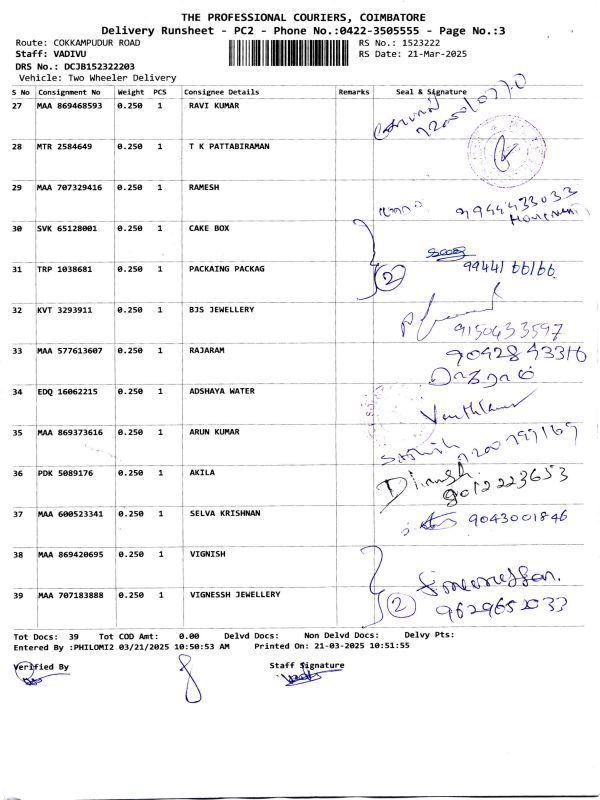 THE PROFESSIONAL COURIERS, COIMBATORE
Delivery Runsheet - PC2 - Phone No.:0422-3505555 - Page No.:3
Route: COKKAMPUDUR ROAD RS No.: 1523222
Staff: VADIVU RS Date: 21-Mar-2025
DRS No.: DCJB152322203
Vehicle: Two Wheeler Delivery
S No Consignment No Weight PCS Consignee Details Remarks Seal & Signature
27 MAA 869468593 0.250 1 RAVI KUMAR
28 MTR 2584649 0.250 1 T K PATTABIRAMAN
29 MAA 707329416 0.250 1 RAMESH 9944433033
30 SVK 65128001 0.250 1 CAKE BOX
31 TRP 1038681 0.250 1 PACKAING PACKAG 2 9944166166
32 KVT 3293911 0.250 1 BJS JEWELLERY 9150433597
33 MAA 577613607 0.250 1 RAJARAM 9042843316
34 EDQ 16062215 0.250 1 ADSHAYA WATER
35 MAA 869373616 0.250 1 ARUN KUMAR
36 PDK 5089176 0.250 1 AKILA 9012223653
37 MAA 600523341 0.250 1 SELVA KRISHNAN 9043001846
38 MAA 869420695 0.250 1 VIGNISH
39 MAA 707183888 0.250 1 VIGNESSH JEWELLERY 2 9629652033
Tot Docs: 39 Tot COD Amt: 0.00 Delvd Docs: Non Delvd Docs: Delvy Pts:
Entered By :PHILOMI2 03/21/2025 10:50:53 AM Printed On: 21-03-2025 10:51:55
Verified By Staff Signature